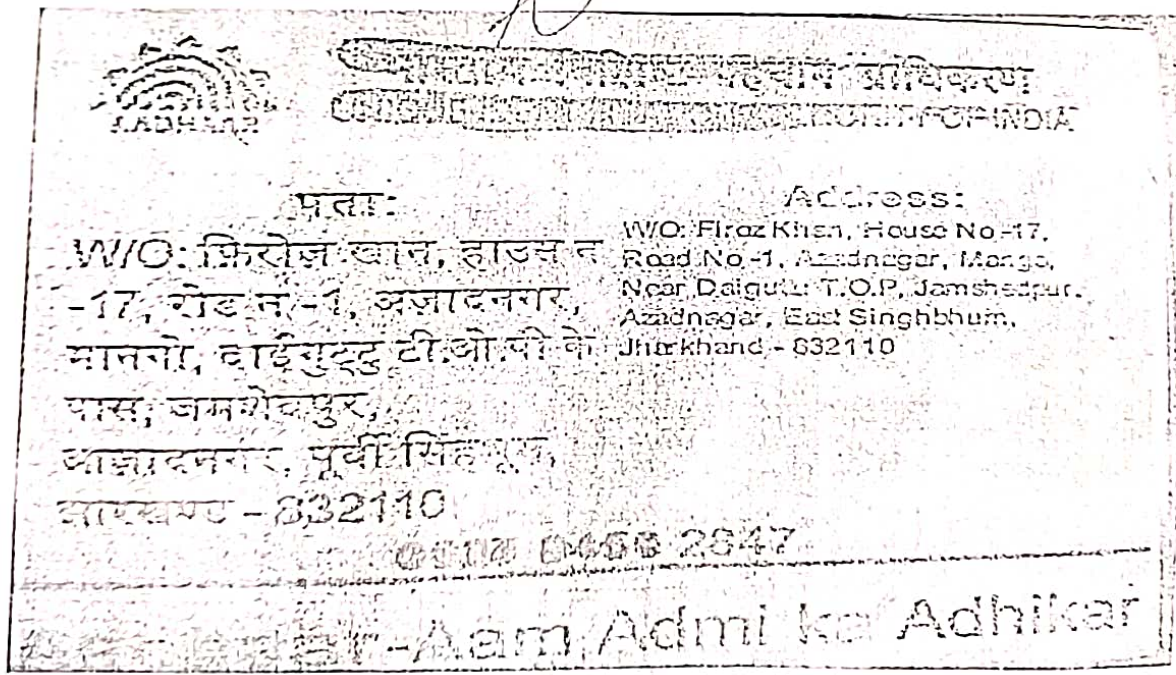 AADHAAR
प्राधिकरण
OF INDIA
पता:
W/O: फ़िरोज़ खान, हाउस न
-17, रोड न -1, अज़ादनगर,
मानगो, दाईगुट्टु टी.ओ.पी के
पास, जमशेदपुर,
आज़ादनगर, पूर्वी सिंहभूम,
झारखण्ड - 832110
Address:
W/O: Firoz Khan, House No -17,
Road No -1, Azadnagar, Mango,
Near Daiguttu T.O.P, Jamshedpur,
Azadnagar, East Singhbhum,
Jharkhand - 832110
2847
-Aam Admi ka Adhikar